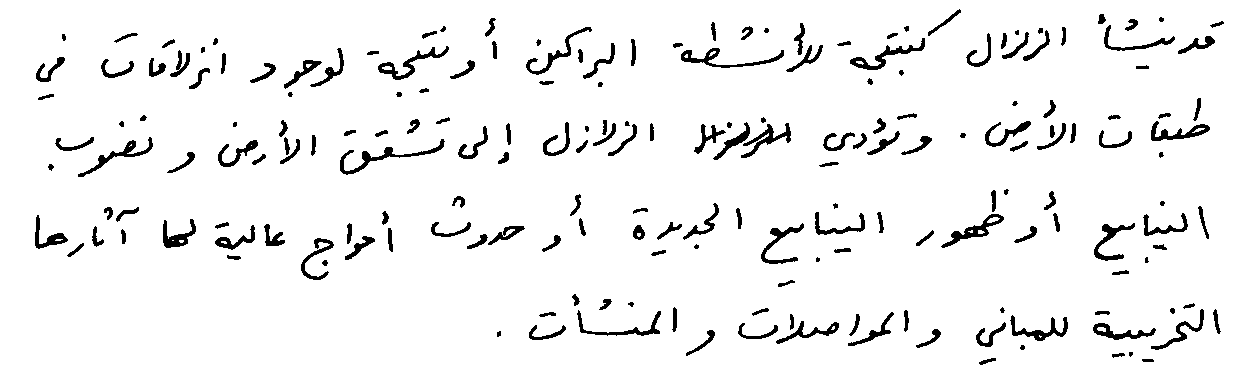 قد ينشأ الزلزال كنتيجة لأنشطة البراكين أو نتيجة لوجود انزلاقات في
طبقات الأرض. وتؤدي الزلازل إلى تشقق الأرض و نضوب
الينابيع أو ظهور الينابيع الجديدة أو حدوث أمواج عالية لها آثارها
التخريبية للمباني والمواصلات و المنشآت.